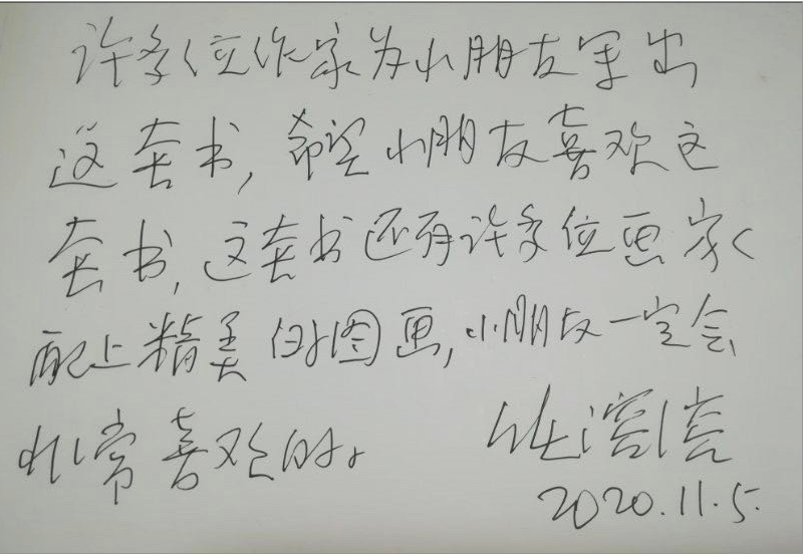 许多位作家为小朋友写出
这套书,希望小朋友喜欢这
套书,这套书还有许多位画家
配上精美的图画,小朋友一定会
非常喜欢的。
2020.11.5.